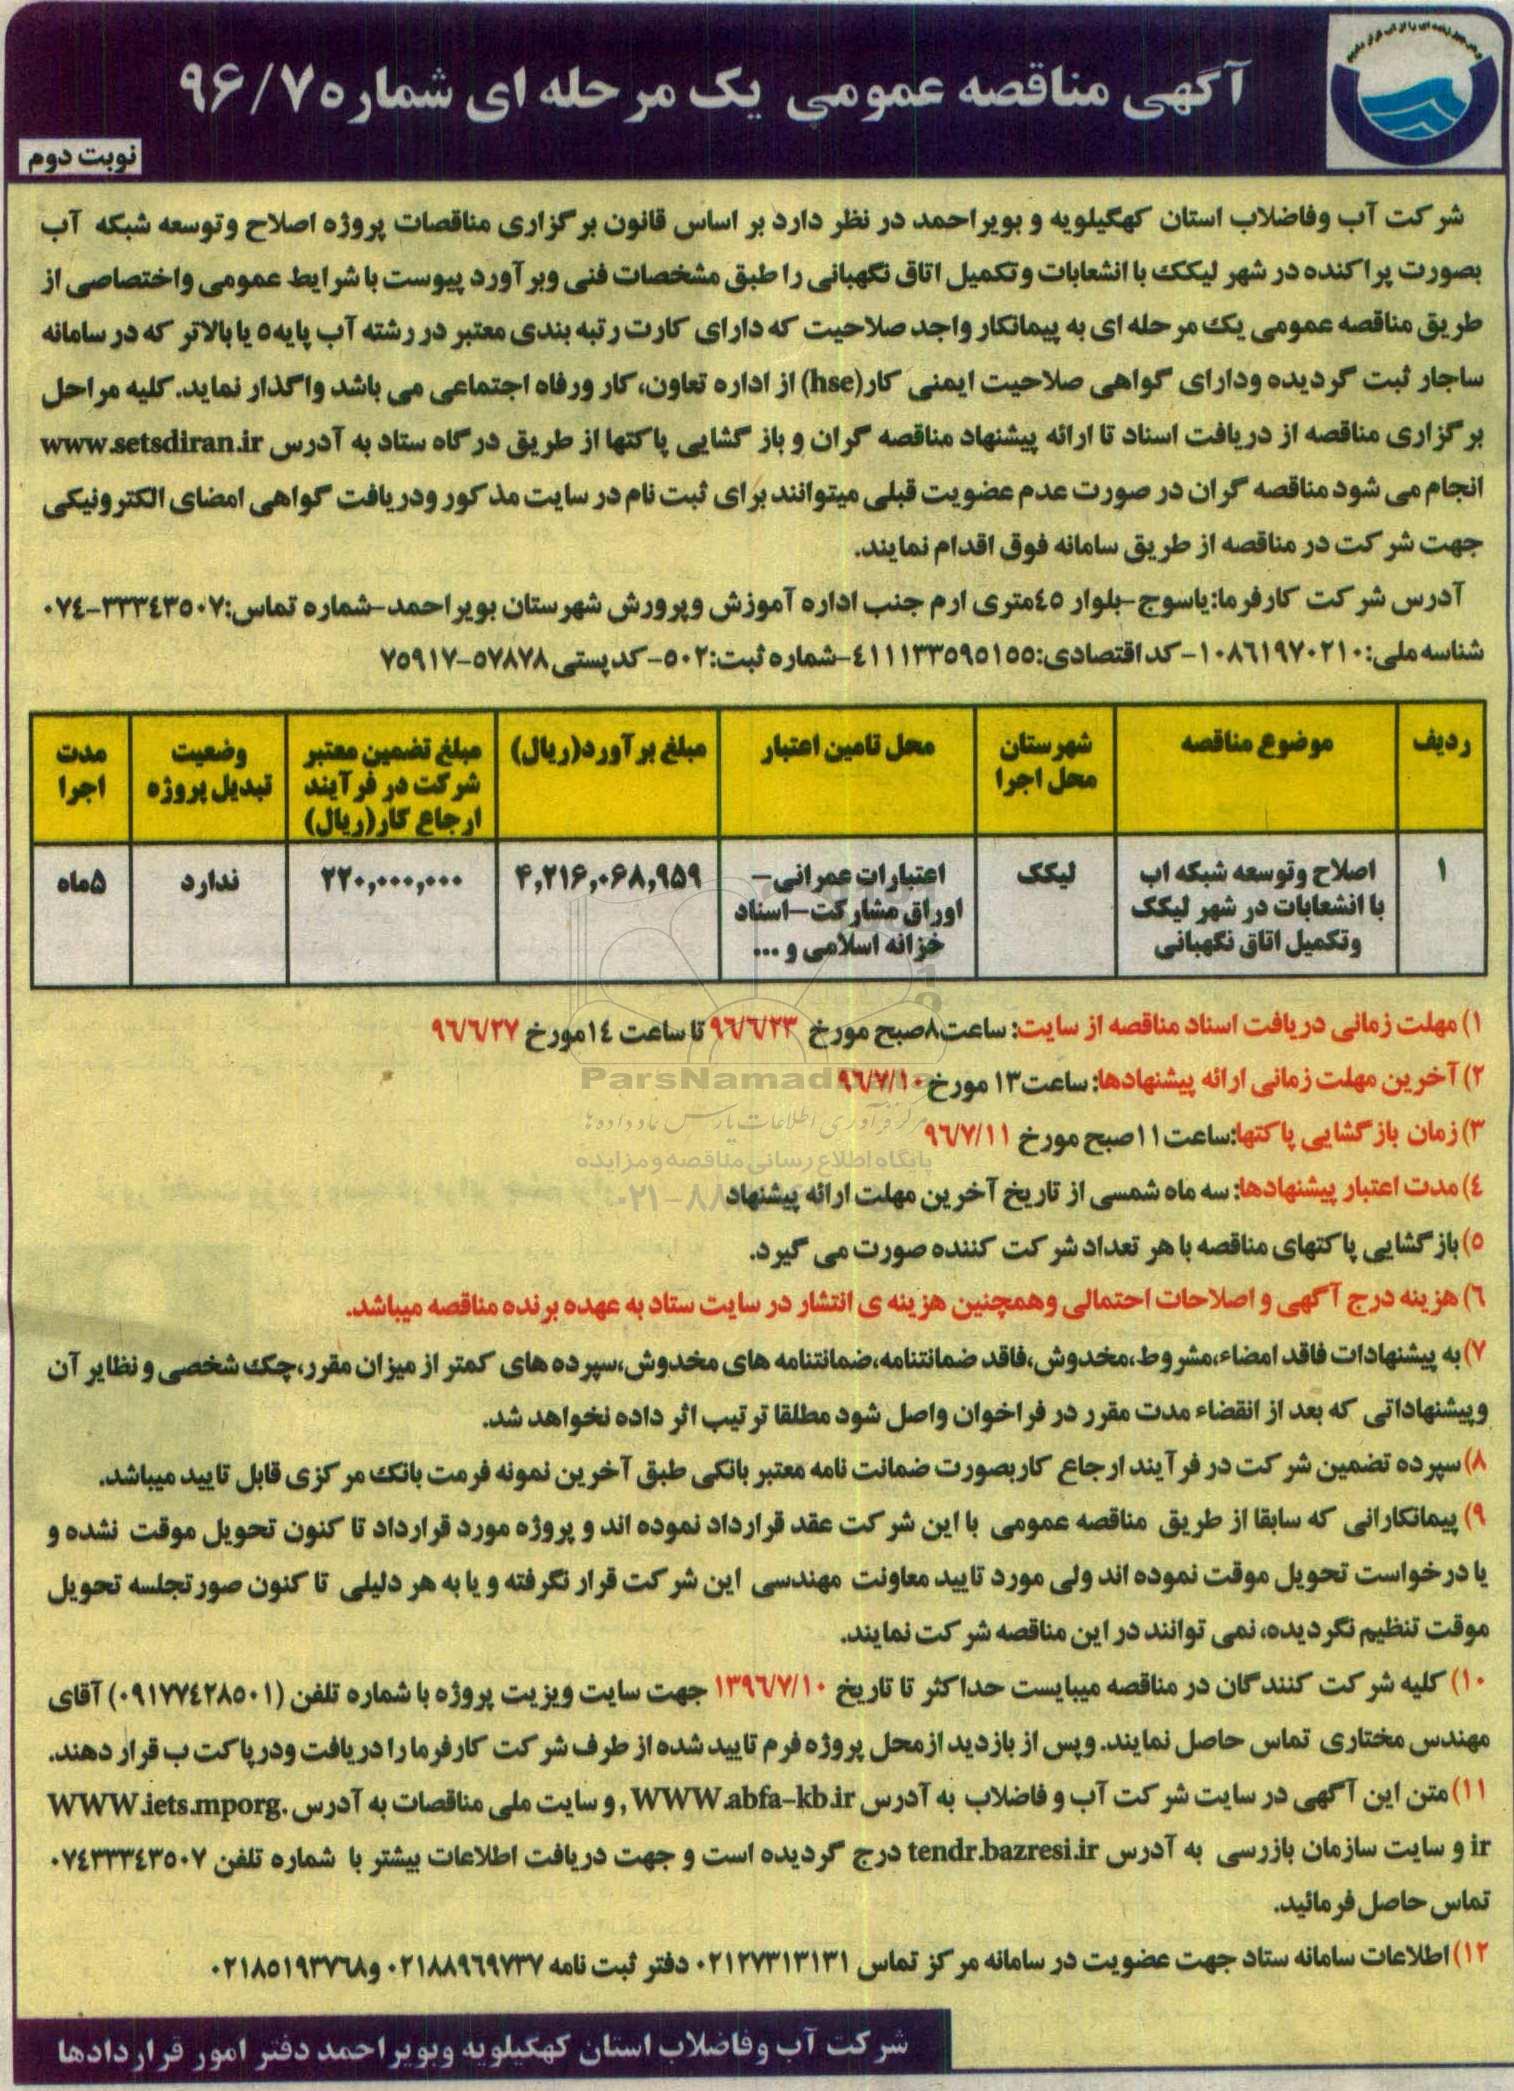 آگهی مناقصه عمومی یک مرحله ای شماره ۹۶/۷
نوبت دوم
شرکت آب وفاضلاب استان کهگیلویه و بویراحمد در نظر دارد بر اساس قانون برگزاری مناقصات پروژه اصلاح وتوسعه شبکه آب
بصورت پراکنده در شهر لیکک با انشعابات وتکمیل اتاق نگهبانی را طبق مشخصات فنی وبرآورد پیوست با شرایط عمومی واختصاصی از
طریق مناقصه عمومی یک مرحله ای به پیمانکار واجد صلاحیت که دارای کارت رتبه بندی معتبر در رشته آب پایه۵ یا بالاتر که در سامانه
ساجار ثبت گردیده ودارای گواهی صلاحیت ایمنی کار(hse) از اداره تعاون،کار ورفاه اجتماعی می باشد واگذار نماید.کلیه مراحل
برگزاری مناقصه از دریافت اسناد تا ارائه پیشنهاد مناقصه گران و باز گشایی پاکتها از طریق درگاه ستاد به آدرس www.setsdiran.ir
انجام می شود مناقصه گران در صورت عدم عضویت قبلی میتوانند برای ثبت نام در سایت مذکور ودریافت گواهی امضای الکترونیکی
جهت شرکت در مناقصه از طریق سامانه فوق اقدام نمایند.
آدرس شرکت کارفرما:یاسوج-بلوار ۴۵متری ارم جنب اداره آموزش وپرورش شهرستان بویراحمد-شماره تماس:۳۳۳۴۳۵۰۷-۰۷۴
شناسه ملی:۱۰۸۶۱۹۷۰۲۱۰-کد اقتصادی:۴۱۱۱۳۳۵۹۵۱۵۵-شماره ثبت:۵۰۲-کدپستی ۵۷۸۷۸-۷۵۹۱۷
ردیف
موضوع مناقصه
شهرستان محل اجرا
محل تامین اعتبار
مبلغ برآورد(ریال)
مبلغ تضمین معتبر شرکت در فرآیند ارجاع کار(ریال)
وضعیت تبدیل پروژه
مدت اجرا
۱
اصلاح وتوسعه شبکه اب
با انشعابات در شهر لیکک
وتکمیل اتاق نگهبانی
لیکک
اعتبارات عمرانی-
اوراق مشارکت-اسناد
خزانه اسلامی و ...
۴,۲۱۶,۰۶۸,۹۵۹
۲۲۰,۰۰۰,۰۰۰
ندارد
۵ماه
۱)مهلت زمانی دریافت اسناد مناقصه از سایت: ساعت۸صبح مورخ ۹۶/۶/۲۳ تا ساعت ۱۴مورخ ۹۶/۶/۲۷
۲)آخرین مهلت زمانی ارائه پیشنهادها: ساعت۱۳ مورخ ۹۶/۷/۱۰
۳)زمان بازگشایی پاکتها:ساعت۱۱صبح مورخ ۹۶/۷/۱۱
۴)مدت اعتبار پیشنهادها: سه ماه شمسی از تاریخ آخرین مهلت ارائه پیشنهاد
۵)بازگشایی پاکتهای مناقصه با هر تعداد شرکت کننده صورت می گیرد.
۶)هزینه درج آگهی و اصلاحات احتمالی وهمچنین هزینه ی انتشار در سایت ستاد به عهده برنده مناقصه میباشد.
۷)به پیشنهادات فاقد امضاء،مشروط،مخدوش،فاقد ضمانتنامه،ضمانتنامه های مخدوش،سپرده های کمتر از میزان مقرر،چک شخصی و نظایر آن
وپیشنهاداتی که بعد از انقضاء مدت مقرر در فراخوان واصل شود مطلقا ترتیب اثر داده نخواهد شد.
۸)سپرده تضمین شرکت در فرآیند ارجاع کاربصورت ضمانت نامه معتبر بانکی طبق آخرین نمونه فرمت بانک مرکزی قابل تایید میباشد.
۹) پیمانکارانی که سابقا از طریق مناقصه عمومی با این شرکت عقد قرارداد نموده اند و پروژه مورد قرارداد تا کنون تحویل موقت نشده و
یا درخواست تحویل موقت نموده اند ولی مورد تایید معاونت مهندسی این شرکت قرار نگرفته و یا به هر دلیلی تا کنون صورتجلسه تحویل
موقت تنظیم نگردیده، نمی توانند در این مناقصه شرکت نمایند.
۱۰) کلیه شرکت کنندگان در مناقصه میبایست حداکثر تا تاریخ ۱۳۹۶/۷/۱۰ جهت سایت ویزیت پروژه با شماره تلفن (۰۹۱۷۷۴۲۸۵۰۱) آقای
مهندس مختاری تماس حاصل نمایند. وپس از بازدید ازمحل پروژه فرم تایید شده از طرف شرکت کارفرما را دریافت ودرپاکت ب قرار دهند.
۱۱)متن این آگهی در سایت شرکت آب و فاضلاب به آدرس WWW.abfa-kb.ir , و سایت ملی مناقصات به آدرس WWW.iets.mporg.
ir و سایت سازمان بازرسی به آدرس tendr.bazresi.ir درج گردیده است و جهت دریافت اطلاعات بیشتر با شماره تلفن ۰۷۴۳۳۳۴۳۵۰۷
تماس حاصل فرمائید.
۱۲)اطلاعات سامانه ستاد جهت عضویت در سامانه مرکز تماس ۰۲۱۲۷۳۱۳۱۳۱ دفتر ثبت نامه ۰۲۱۸۸۹۶۹۷۳۷ و۰۲۱۸۵۱۹۳۷۶۸
شرکت آب وفاضلاب استان کهگیلویه وبویراحمد دفتر امور قراردادها
ParsNamadData
مرکز فرآوری اطلاعات پارس نماد داده ها
پایگاه اطلاع رسانی مناقصه و مزایده